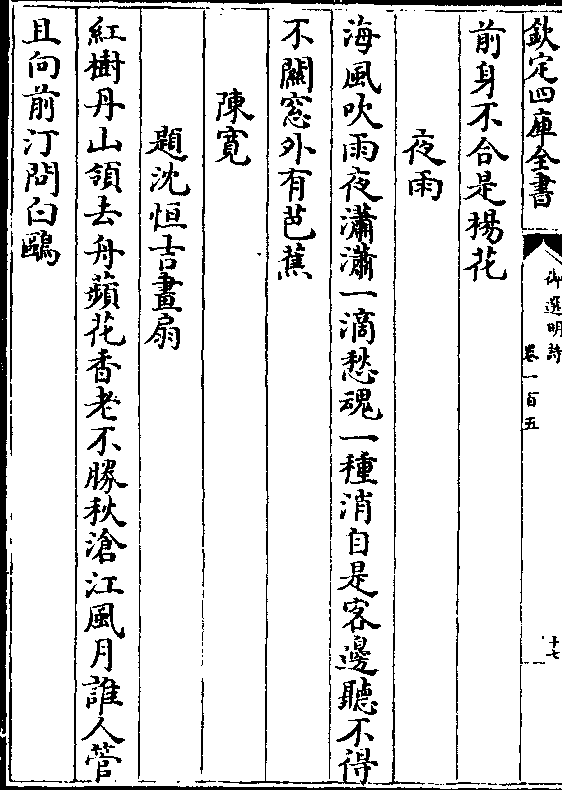 欽定四庫全書
御選明詩
卷一百五
十七
前身不合是楊花
夜雨
海風吹雨夜瀟瀟一滴愁魂一種消自是客邊聽不得
不關窓外有芭蕉
陳寛
題沈恒吉畫扇
紅樹丹山領去舟蘋花香老不勝秋滄江風月誰人管
且向前汀問白鷗